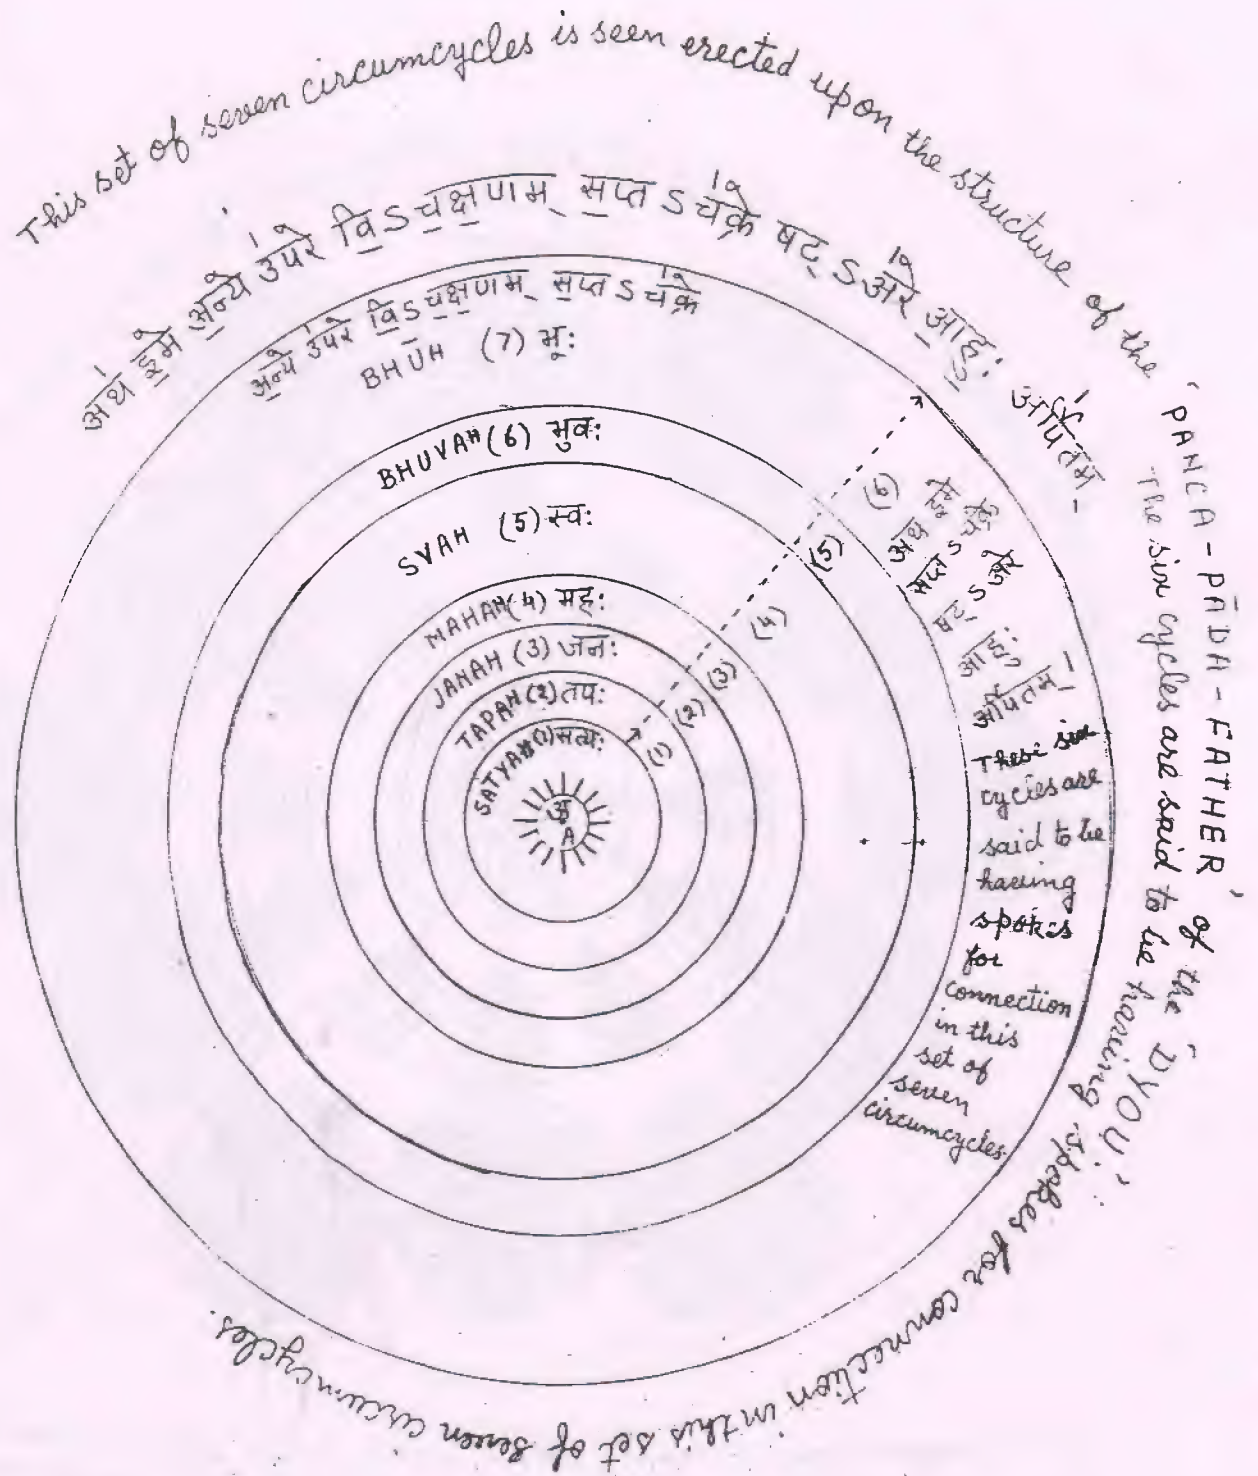 This set of seven circumcycles is seen erected upon the structure of the 'PANCA-PĀDA-FATHER' of the 'DYOU'.
The six cycles are said to be having spokes for connection in this set of seven circumcycles.
अथ॑ इ॒मे अ॒न्ये उप॑रे वि॒ऽच॒क्ष॒णम् स॒प्तऽच॑क्रे षट्ऽअ॑रे आ॒हुः॒ अर्पि॑तम्-
अ॒न्ये उप॑रे वि॒ऽच॒क्ष॒णम् स॒प्तऽच॑क्रे
BHŪH (7) भू:
BHUVAH (6) भुव:
SVAH (5) स्व:
MAHAH (4) मह:
JANAH (3) जन:
TAPAH (2) तप:
SATYAH (1) सत्य:
A
(1)
(2)
(3)
(4)
(5)
(6)
अथ इमे
सप्तऽचक्रे
षट्ऽअरे
आहुः
अर्पितम्-
These six
cycles are
said to be
having
spokes
for
connection
in this
set of
seven
circumcycles.